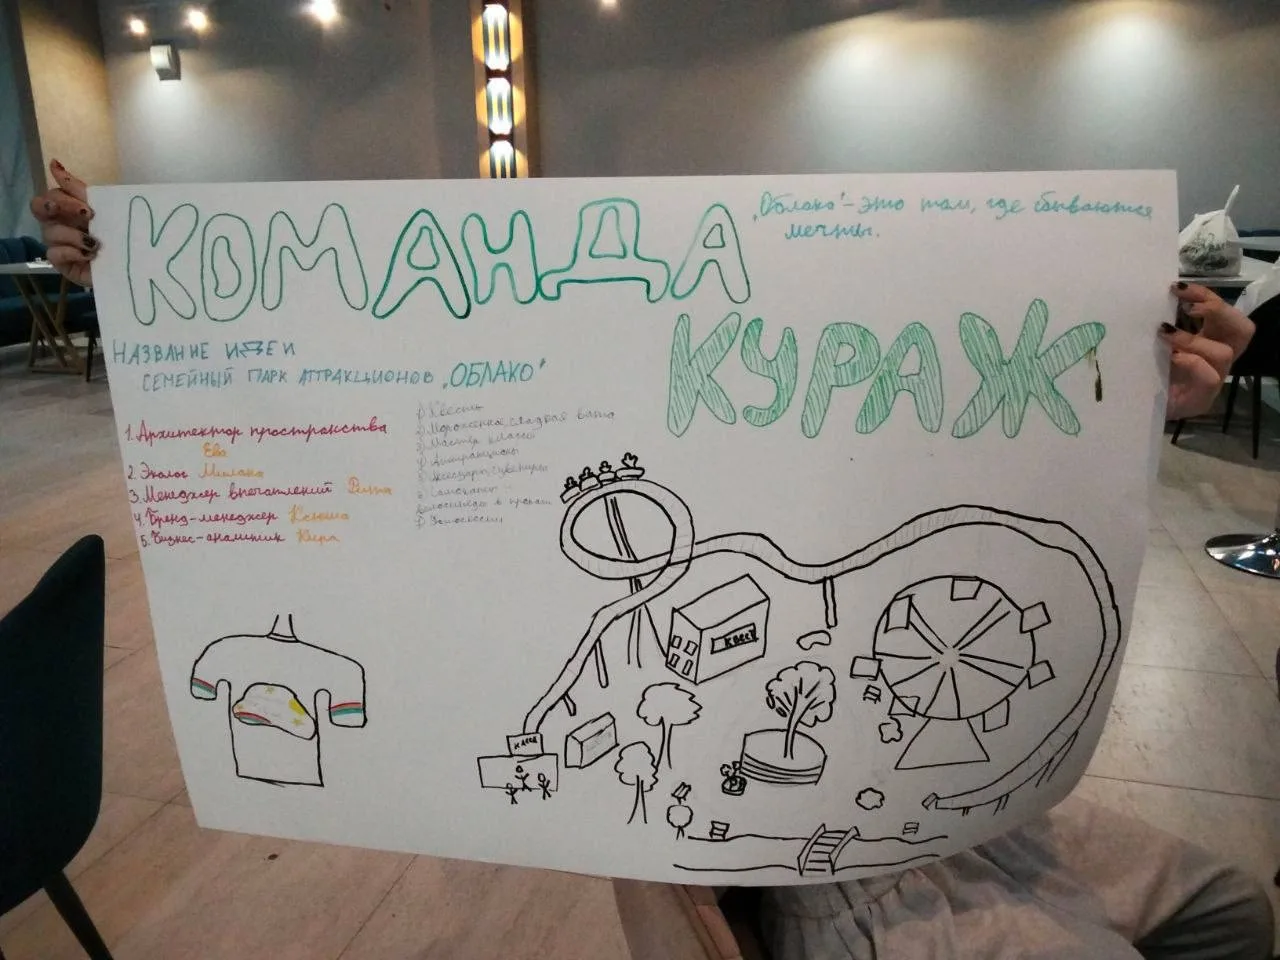 КОМАНДА
КУРАЖ
„Облако“ - это там, где сбываются
мечты.
НАЗВАНИЕ ИДЕИ
СЕМЕЙНЫЙ ПАРК АТТРАКЦИОНОВ „ОБЛАКО“
1. Архитектор пространства
Ева
2. Эколог Милана
3. Менеджер впечатлений Рита
4. Бренд-менеджер Ксюша
5. Бизнес-аналитик Кира
1) Квесты
2) Мороженое, сладкая вата
3) Мастер класс
4) Аттракционы
КВЕСТ
КАССА